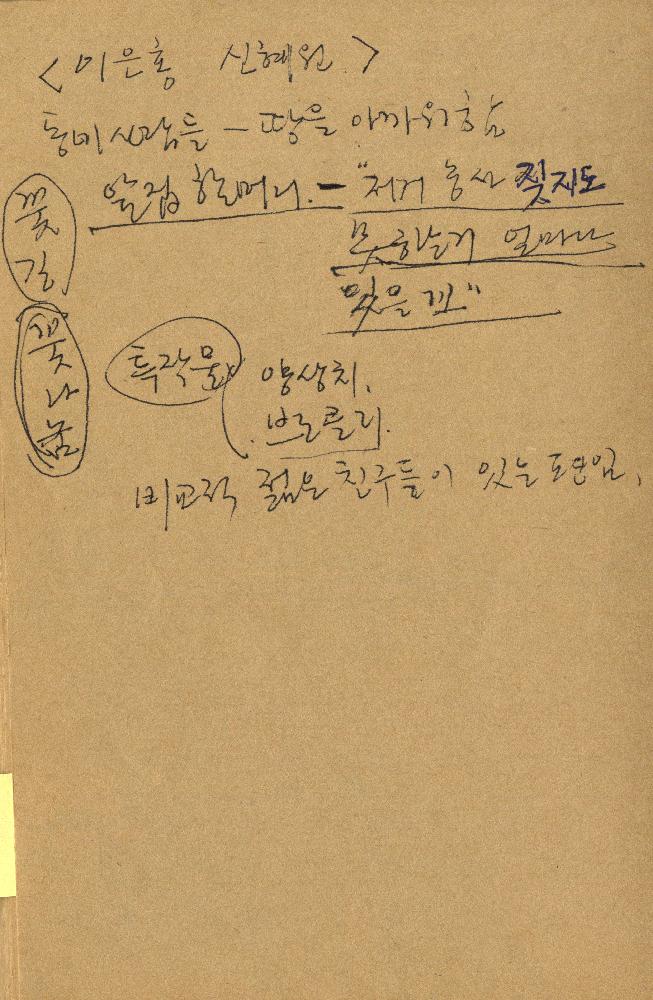 <이은홍 신혜원>
동네사람들 - 땅을 아까워함
앞집 할머니. - "저거 농사 짓지도
못하는거 얼마나
밎을꼬"
꽃길
꽃나눔
특작물
양상치,
브로콜리.
비교적 젊은 친구들이 있는